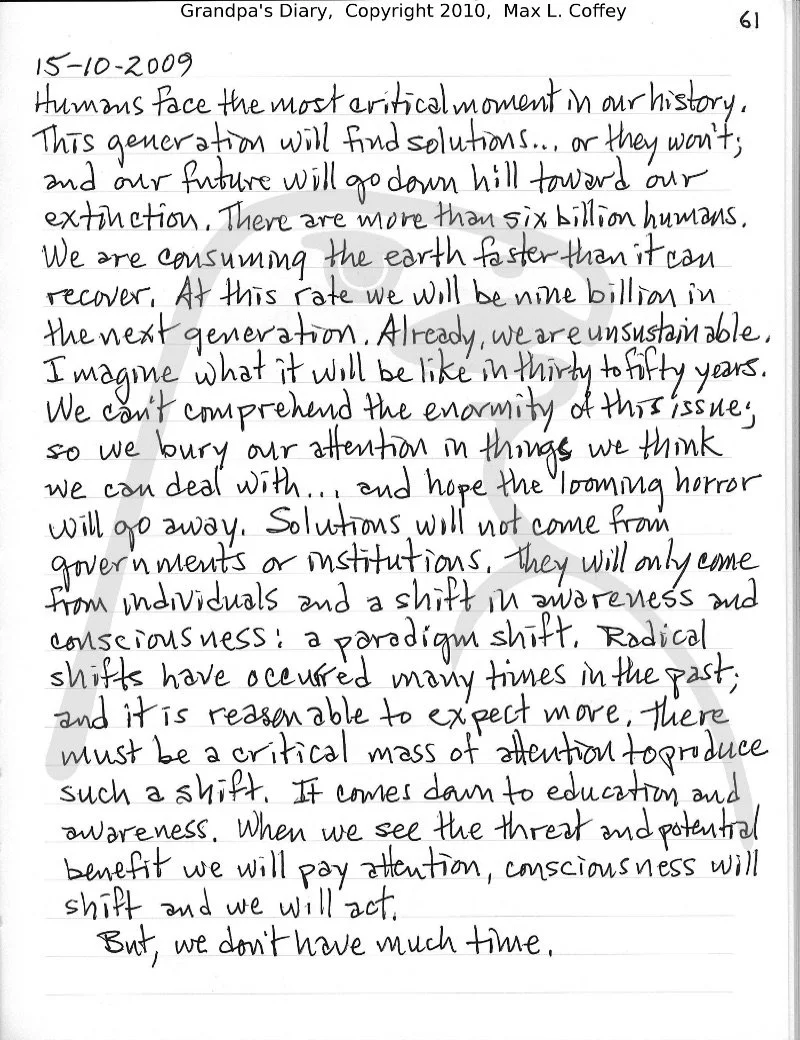 Grandpa's Diary, Copyright 2010, Max L. Coffey
61
15-10-2009
Humans face the most critical moment in our history.
This generation will find solutions... or they won't;
and our future will go down hill toward our
extinction. There are more than six billion humans.
We are consuming the earth faster than it can
recover. At this rate we will be nine billion in
the next generation. Already, we are unsustainable.
Imagine what it will be like in thirty to fifty years.
We can't comprehend the enormity of this issue;
so we bury our attention in things we think
we can deal with... and hope the looming horror
will go away. Solutions will not come from
governments or institutions. They will only come
from individuals and a shift in awareness and
consciousness: a paradigm shift. Radical
shifts have occurred many times in the past;
and it is reasonable to expect more. There
must be a critical mass of attention to produce
such a shift. It comes down to education and
awareness. When we see the threat and potential
benefit we will pay attention, consciousness will
shift and we will act.
But, we don't have much time.